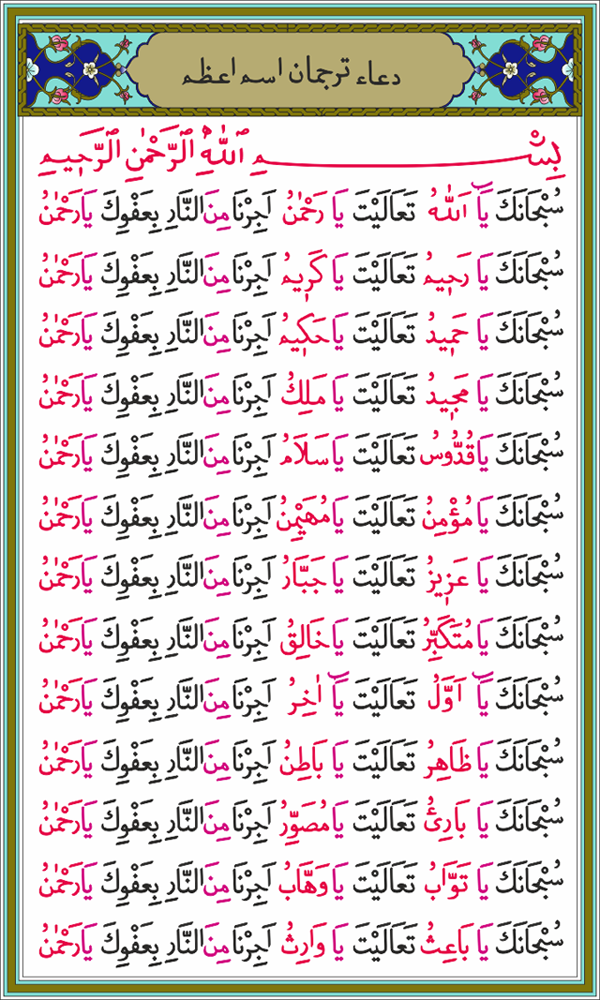 دعاء ترجمان اسم اعظم
بِسْمِ اللّٰهِ الرَّحْمٰنِ الرَّحٖيمِ
سُبْحَانَكَ يَٓا اَللّٰهُ تَعَالَيْتَ يَا رَحْمٰنُ اَجِرْنَا مِنَ النَّارِ بِعَفْوِكَ يَا رَحْمٰنُ
سُبْحَانَكَ يَا رَحٖيمُ تَعَالَيْتَ يَا كَرٖيمُ اَجِرْنَا مِنَ النَّارِ بِعَفْوِكَ يَا رَحْمٰنُ
سُبْحَانَكَ يَا حَمٖيدُ تَعَالَيْتَ يَا حَكٖيمُ اَجِرْنَا مِنَ النَّارِ بِعَفْوِكَ يَا رَحْمٰنُ
سُبْحَانَكَ يَا مَجٖيدُ تَعَالَيْتَ يَا مَلِكُ اَجِرْنَا مِنَ النَّارِ بِعَفْوِكَ يَا رَحْمٰنُ
سُبْحَانَكَ يَا قُدُّوسُ تَعَالَيْتَ يَا سَلَامُ اَجِرْنَا مِنَ النَّارِ بِعَفْوِكَ يَا رَحْمٰنُ
سُبْحَانَكَ يَا مُؤْمِنُ تَعَالَيْتَ يَا مُهَيْمِنُ اَجِرْنَا مِنَ النَّارِ بِعَفْوِكَ يَا رَحْمٰنُ
سُبْحَانَكَ يَا عَزٖيزُ تَعَالَيْتَ يَا جَبَّارُ اَجِرْنَا مِنَ النَّارِ بِعَفْوِكَ يَا رَحْمٰنُ
سُبْحَانَكَ يَا مُتَكَبِّرُ تَعَالَيْتَ يَا خَالِقُ اَجِرْنَا مِنَ النَّارِ بِعَفْوِكَ يَا رَحْمٰنُ
سُبْحَانَكَ يَٓا اَوَّلُ تَعَالَيْتَ يَٓا اٰخِرُ اَجِرْنَا مِنَ النَّارِ بِعَفْوِكَ يَا رَحْمٰنُ
سُبْحَانَكَ يَا ظَاهِرُ تَعَالَيْتَ يَا بَاطِنُ اَجِرْنَا مِنَ النَّارِ بِعَفْوِكَ يَا رَحْمٰنُ
سُبْحَانَكَ يَا بَارِئُ تَعَالَيْتَ يَا مُصَوِّرُ اَجِرْنَا مِنَ النَّارِ بِعَفْوِكَ يَا رَحْمٰنُ
سُبْحَانَكَ يَا تَوَّابُ تَعَالَيْتَ يَا وَهَّابُ اَجِرْنَا مِنَ النَّارِ بِعَفْوِكَ يَا رَحْمٰنُ
سُبْحَانَكَ يَا بَاعِثُ تَعَالَيْتَ يَا وَارِثُ اَجِرْنَا مِنَ النَّارِ بِعَفْوِكَ يَا رَحْمٰنُ